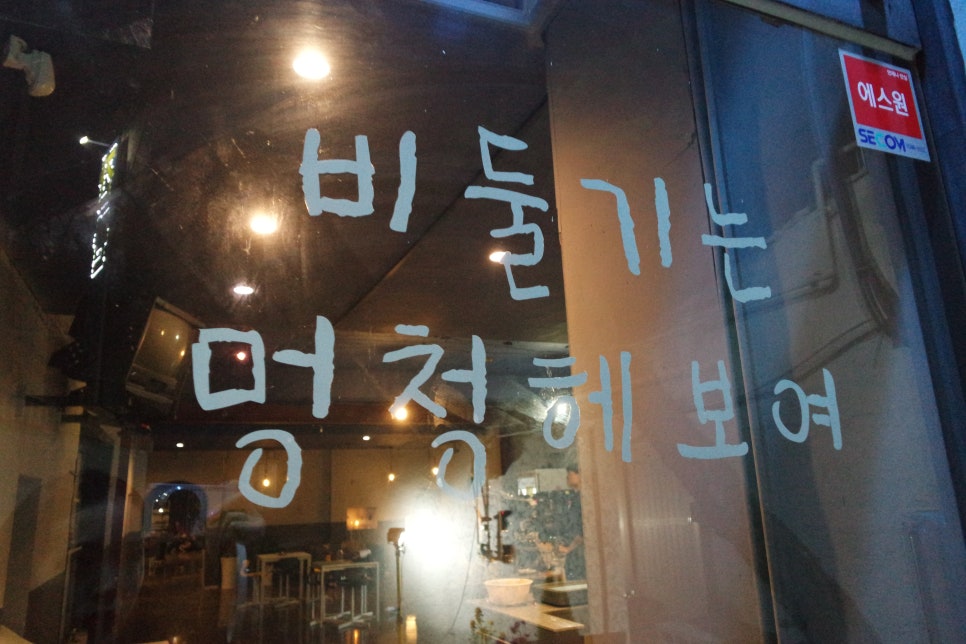 비둘기는
멍청헤 보여
에스원
SECOM